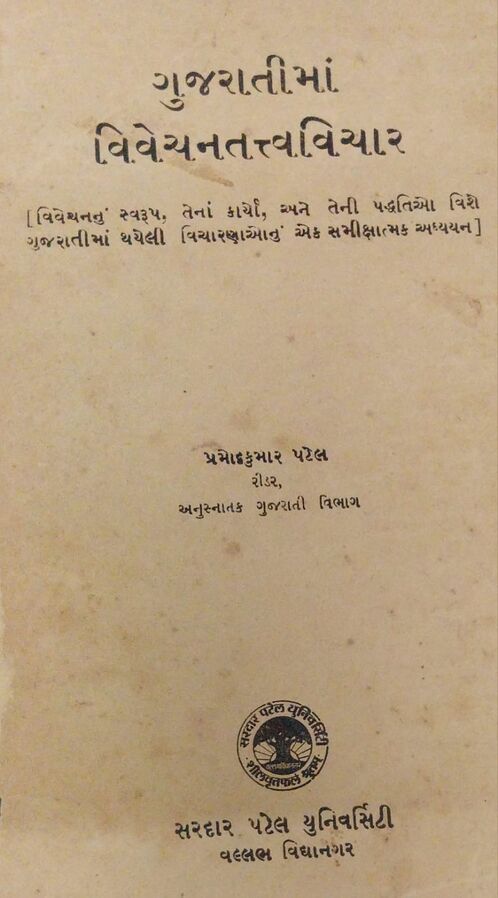 ગુજરાતીમાં
વિવેચનતત્ત્વવિચાર
[વિવેચનનું સ્વરૂપ, તેનાં કાર્યો, અને તેની પદ્ધતિઓ વિશે
ગુજરાતીમાં થયેલી વિચારણાઓનું એક સમીક્ષાત્મક અધ્યયન]
પ્રમોદકુમાર પટેલ
રીડર,
અનુસ્નાતક ગુજરાતી વિભાગ
સરદાર પટેલ યુનિવર્સિટી
વલ્લભવિદ્યાનગર
શીલવૃત્તફલં શ્રુતમ્
સરદાર પટેલ યુનિવર્સિટી
વલ્લભ વિદ્યાનગર